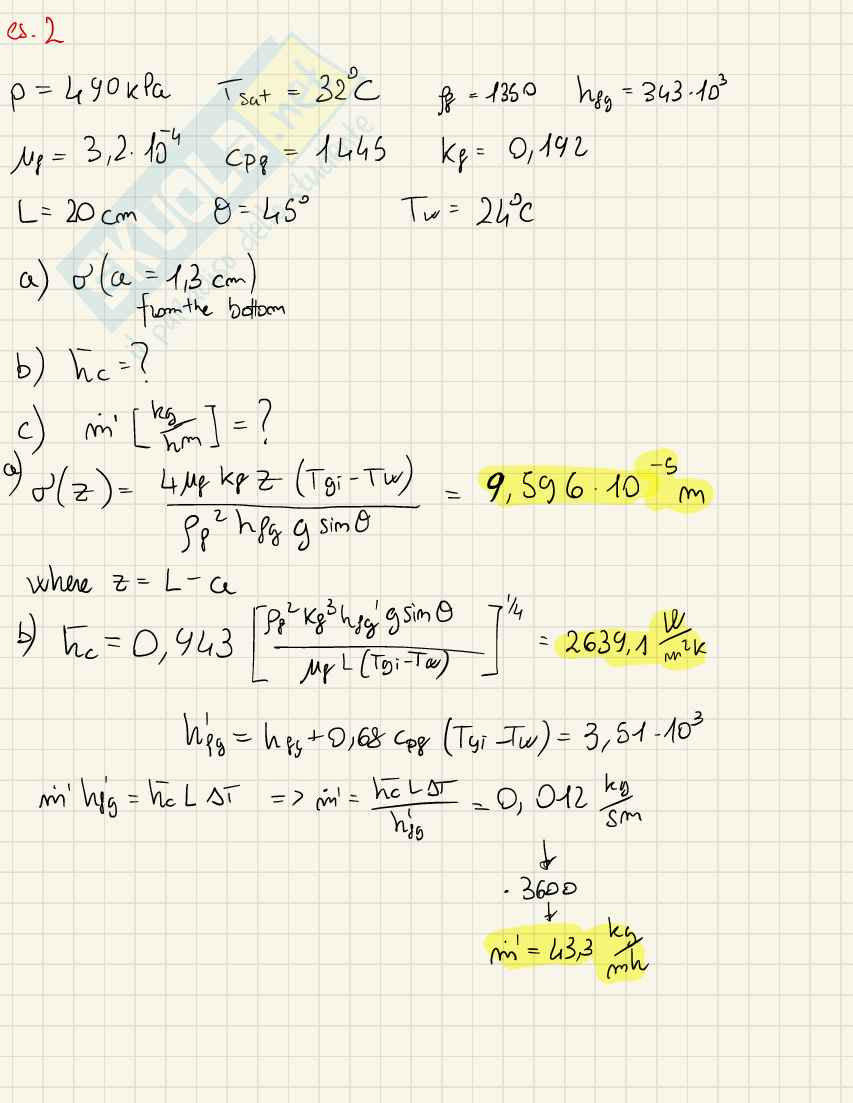 es. 2
p = 490 kPa T sat = 32°C ρf = 1350 hfg = 343·10³
μf = 3,2·10⁻⁴ cpf = 1445 kf = 0,192
L = 20 cm θ = 45° Tw = 24°C
a) σ(a = 1,3 cm)
from the bottom
b) h̄c = ?
c) ṁ' [kg/hm] = ?
a) σ(z) = 4μf kf z (Tgi - Tw) / ρf² hfg g sinθ = 9,596·10⁻⁵ m
where z = L - a
b) h̄c = 0,943 [ρf² kf³ hfg' g sinθ / μf L (Tgi - Tw)]^1/4 = 2639,1 W/m²K
h'fg = hfg + 0,68 cpf (Tgi - Tw) = 3,51·10³
ṁ' h'fg = h̄c L ΔT => ṁ' = h̄c L ΔT / h'fg = 0,012 kg/sm
↓
· 3600
↓
ṁ' = 43,3 kg/mh
SKUOLA.net